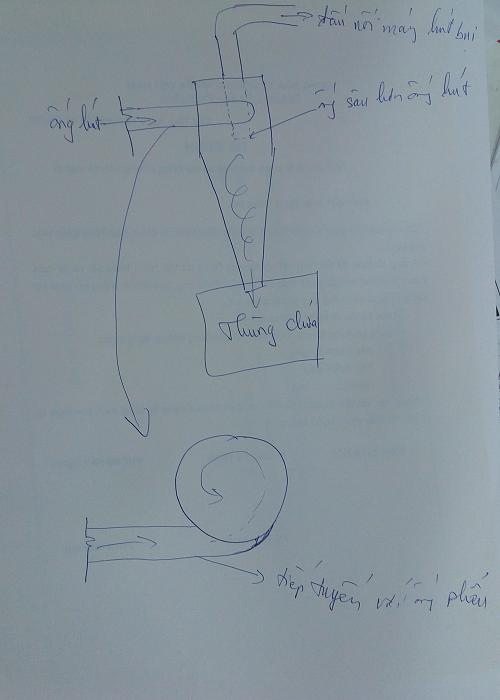 đầu nối máy hút bụi
ống sâu hơn ống hút
ống hút
Thùng chứa
tiếp tuyến với ống phễu